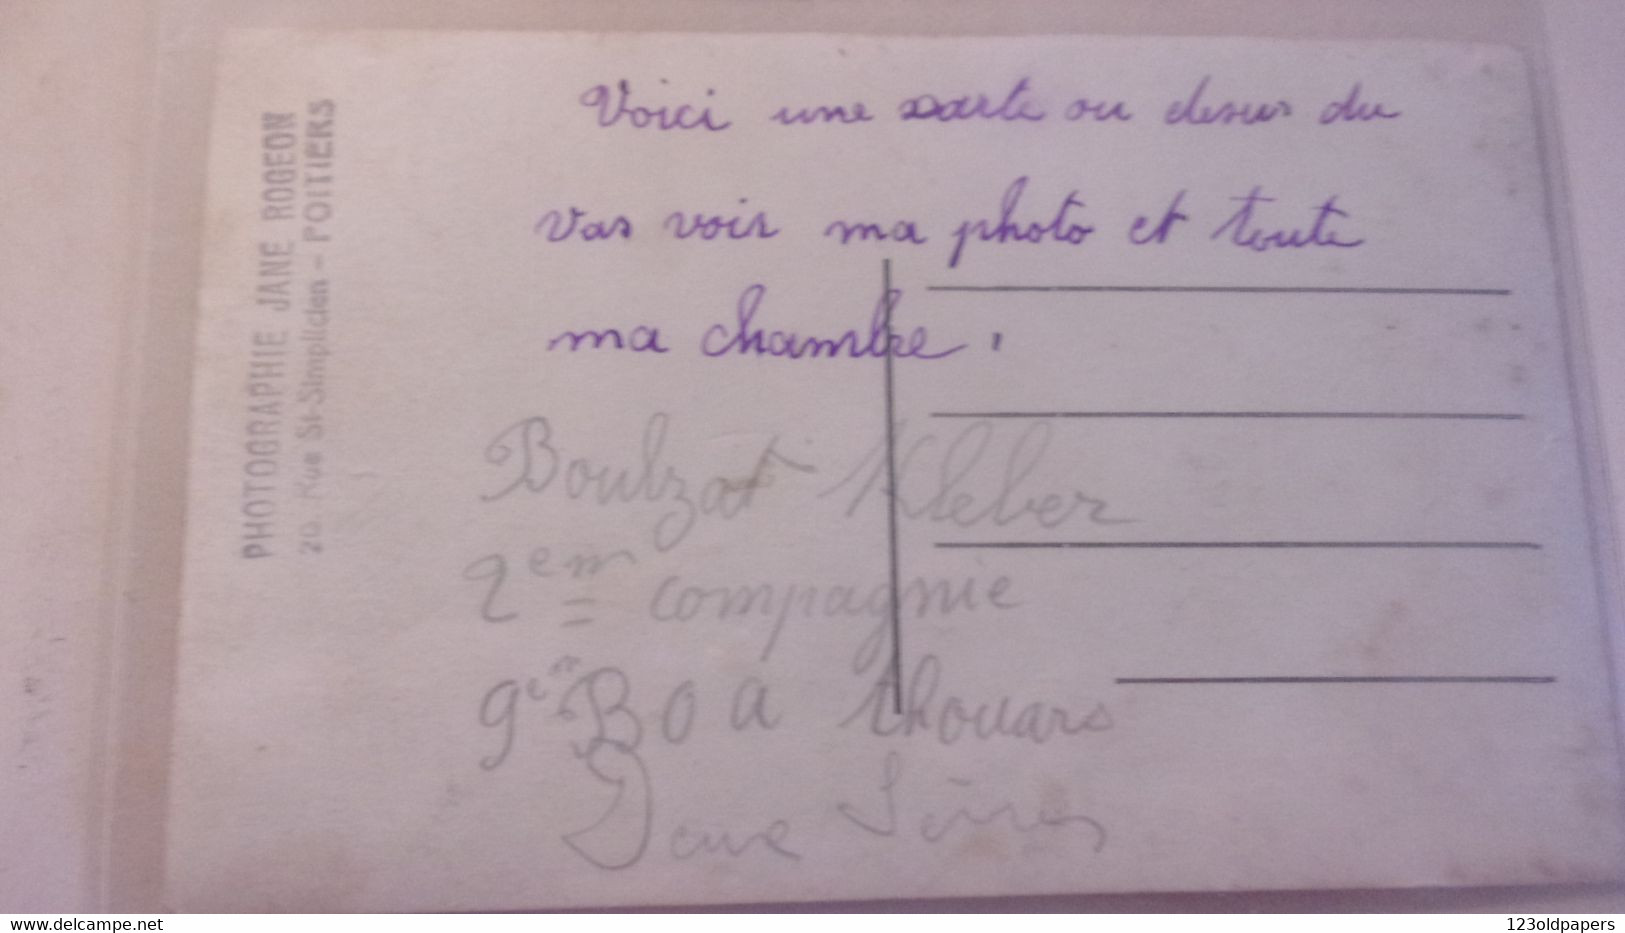 PHOTOGRAPHIE JANE ROGEON
20, Rue St-Simplicien - POITIERS
Voici une carte ou desus du
vas voir ma photo et toute
ma chambre.
Boulzat Kleber
2em compagnie
9em B O A thouars
Deux Sèvres
www.delcampe.net
123oldpapers